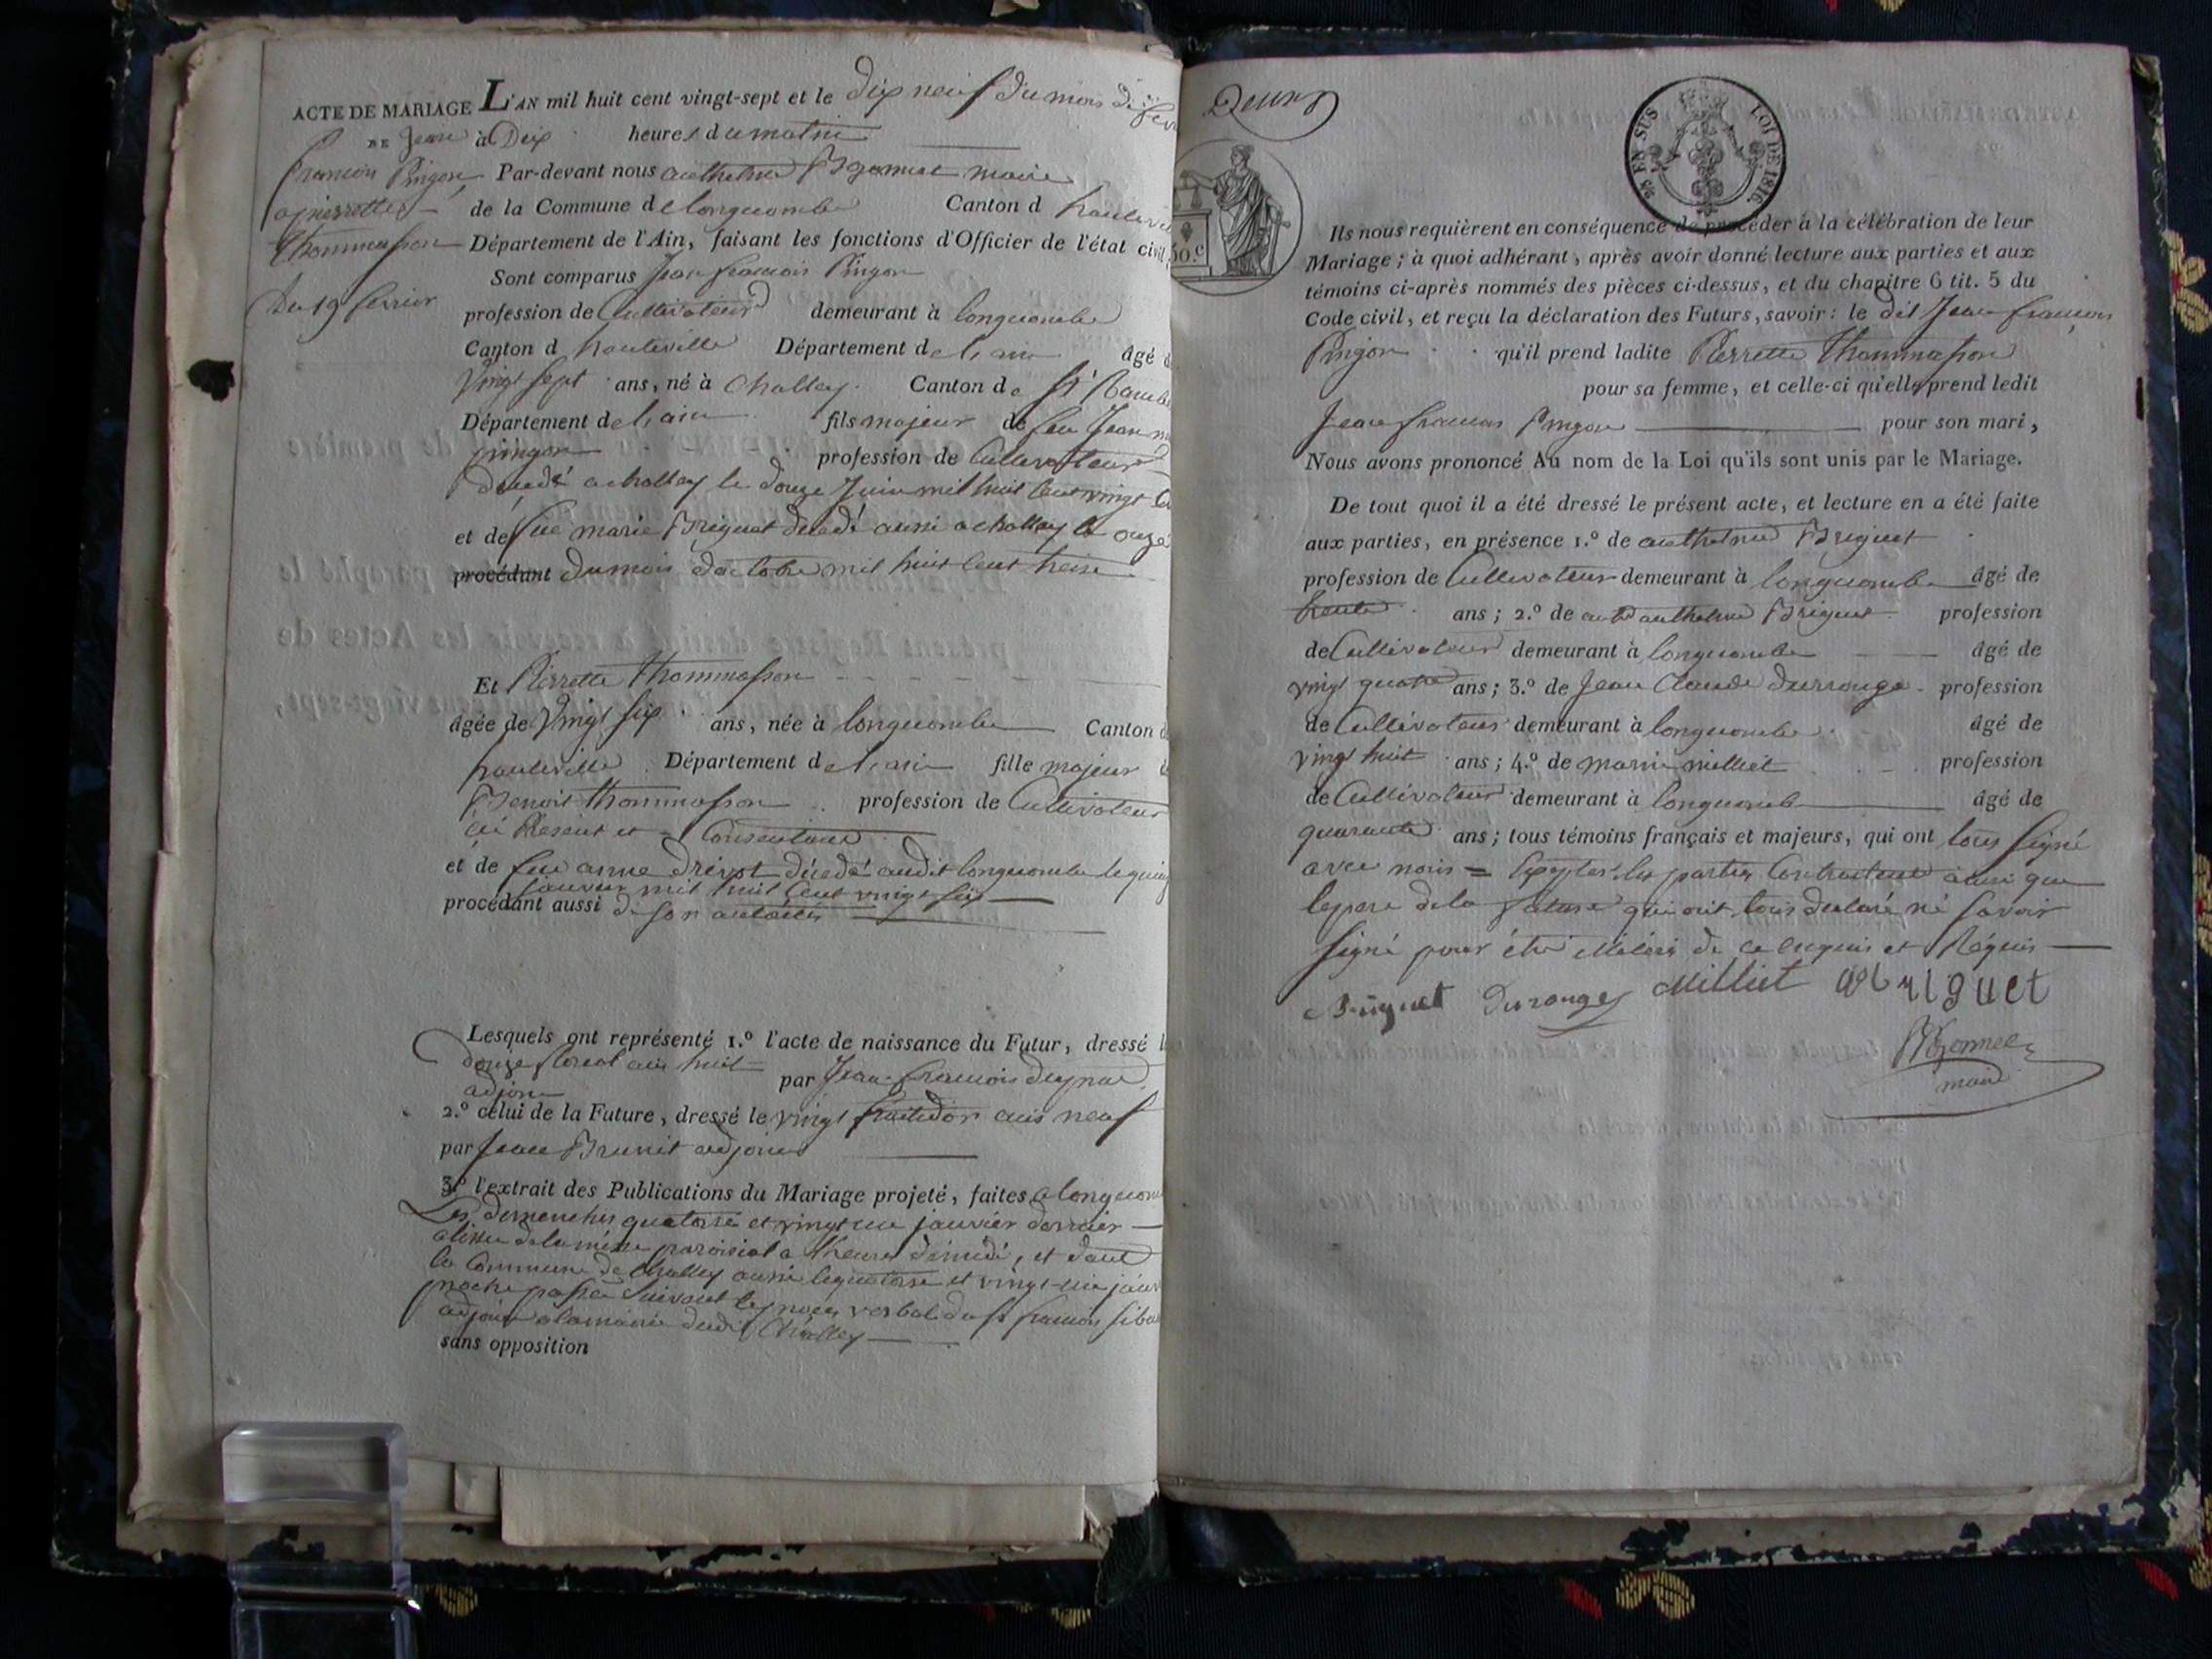 ACTE DE MARIAGE
DE Jean
francois Pingon
a pierrette
Thommasson
Du 19 fevrier
L'AN mil huit cent vingt-sept et le dix neuf du mois de fev
à Dix heures du matin
Par-devant nous anthelme maire
de la Commune de longecombe Canton d hautevi
Département de l'Ain, faisant les fonctions d'Officier de l'état civil,
Sont comparus Jean francois Pingon
profession de Cultivateur demeurant à longecombe
Canton d hauteville Département de l'ain âgé d
Vingt sept ans, né à Challey Canton de St Ramb
Département de l'ain fils majeur de feu Jean m
pingon profession de Cultivateur
décédé a challey le douze Juin mil huit cent vingt
et de feue marie Briguet décédé aussi a challey le onze
procédant du mois doctobre mil huit cent treize
Et Pierrette Thommasson
âgée de Vingt six ans, née à longecombe Canton d
hauteville Département de l'ain fille majeur d
Benoit Thommasson profession de Cultivateur
ici Present et Consentant
et de feue anne décédé audit longecombe le quin
janvier mil huit cent vingt six
procédant aussi de son autorité
Lesquels ont représenté 1.° l'acte de naissance du Futur, dressé l
douze floreal an huit par Jean francois
adjoin
2.° celui de la Future, dressé le vingt fructidor ans neuf
par Jean Brunet adjoint
3.° l'extrait des Publications du Mariage projeté, faites a longecom
Les dimenches quatorze et vingt un janvier dernier
a lissue de la messe paroissial a heure de midi, et dant
la Commune de Challey aussi le quatorze et vingt-un janv
proche passé suivant le proces verbal du sr francois
adjoint a la mairie dudit Challey
sans opposition
Deux
50.c
25 EN SUS LOI DE 1816
Ils nous requièrent en conséquence de procéder à la célébration de leur
Mariage ; à quoi adhérant, après avoir donné lecture aux parties et aux
témoins ci-après nommés des pièces ci-dessus, et du chapitre 6 tit. 5 du
Code civil, et reçu la déclaration des Futurs, savoir : le dit Jean francois
Pingon qu'il prend ladite Pierrette Thommasson
pour sa femme, et celle-ci qu'elle prend ledit
Jean francois Pingon pour son mari,
Nous avons prononcé Au nom de la Loi qu'ils sont unis par le Mariage.
De tout quoi il a été dressé le présent acte, et lecture en a été faite
aux parties, en présence 1.° de anthelme Briguet
profession de Cultivateur demeurant à longecombe âgé de
trente ans ; 2.° de anthelme Briguet profession
de Cultivateur demeurant à longecombe âgé de
vingt quatre ans ; 3.° de Jean Claude durrouge profession
de Cultivateur demeurant à longecombe âgé de
vingt huit ans ; 4.° de marin milliet profession
de Cultivateur demeurant à longecombe âgé de
quarante ans ; tous témoins français et majeurs, qui ont tous signé
avec nous = Excepter les parties Contractant ainsi que
le pere de la future qui ont tous declaré ne savoir
signé pour être de ce enquis et Réquis
Briguet Durouge Milliet Briguet
maire